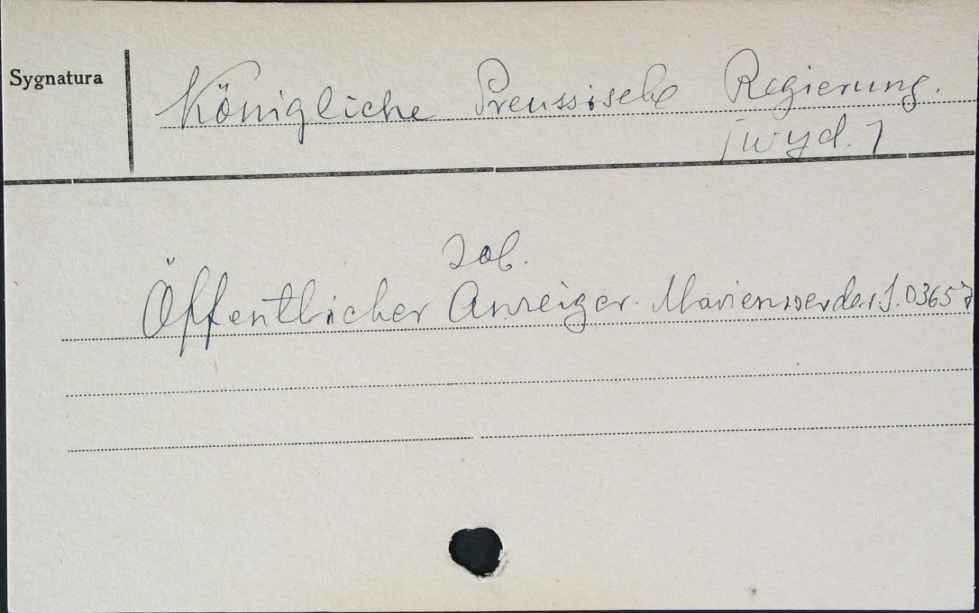 Sygnatura
Königliche Preussische Regierung.
[wyd.]
Zob.
Öffentlicher Anzeiger. Marienwerder S. 03657